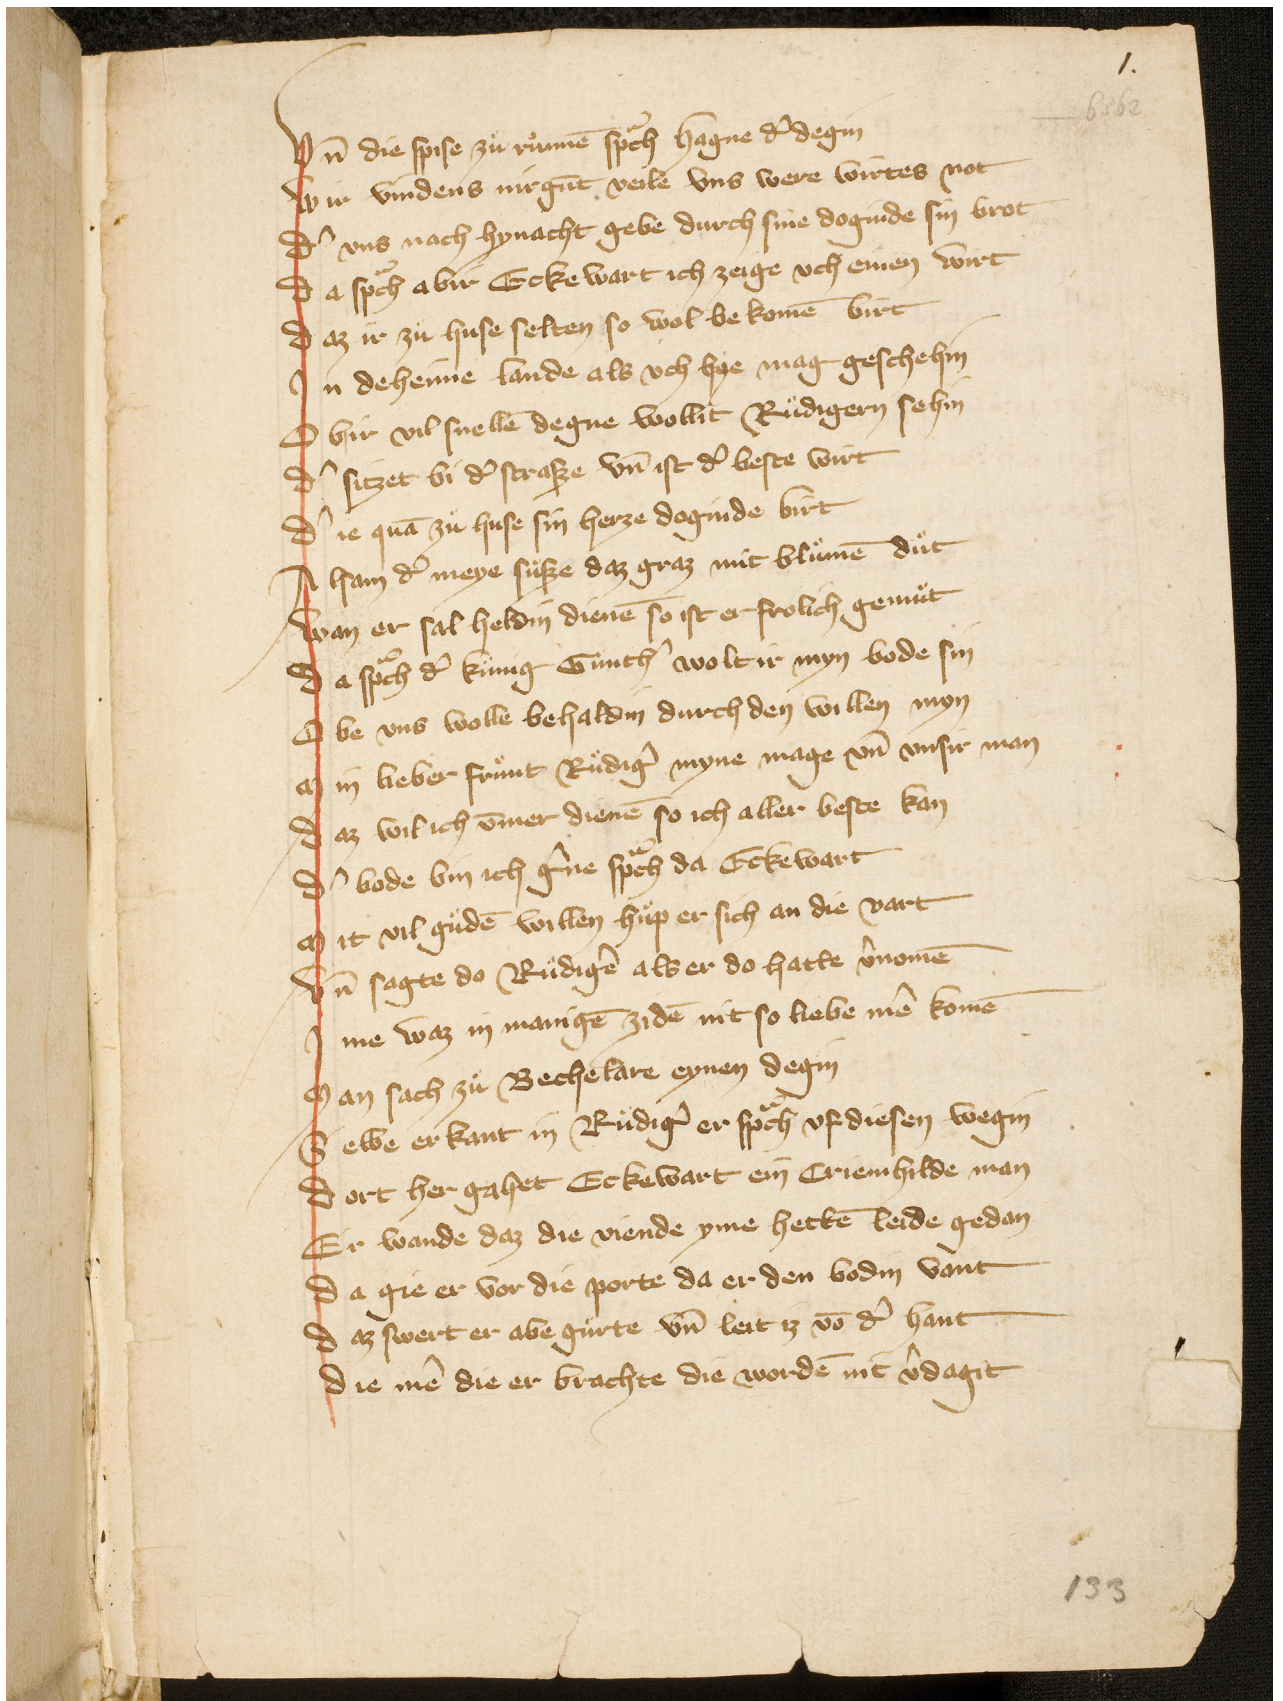 1.
6362
Vn̄ die spise zuͦ rūnnē spͣch hagne dˀ degin
Wir vindens nirgūt veile vns were wirtes not
Dˀ vns nach hynacht gebe durch sine doginde sin brot
Da spͣch abir Eckewart ich zeige vch einen wirt
Daz ir zuͦ huse selten so wol bekomē birt
In deheime lande als vch hye mag geschehin
Obir vil snellē degne wollit Ruͤdigern sehin
Dˀ sitzet bi dˀ strasze vn̄ ist dˀ beste wirt
Dˀ ie quā zuͦ huse sin herze doginde birt
Alsam dˀ meye suͤsze daz graz mit bluͦmē duͦt
Wan er sal heldin dienē so ist er frolich gemuͦt
Da spͣch dˀ kuͤnig Guͤnthˀ wolt ir myn bode sin
Obe vns wolle behaldin durch den willen myn
Min lieber fruͤnt Ruͤdigˀ myne mage vn̄ vnsir man
Daz wil ich v̄mer dienē so ich aller beste kan
Dˀ bode bin ich gˀne spͣch da Eckewart
Mit vil guͦdē willen huͦp er sich an die vart
Vn̄ sagte do Ruͤdigˀe als er do hatte vˀnomē
Ime waz in manigē zidē nit so liebe mˀe komē
Man sach zuͦ Bechelare eynen degin
Selbe erkant in Ruͤdigˀ er spͣch vf diesen wegin
Dort her gahet Eckewart ein Criemhilde man
Er wande daz die viende yme hettē leide gedan
Da gie er vor die porte da er den bodin vant
Daz swert er abe gurte vn̄ leit iz vō dˀ hant
Die mˀe die er brachte die wordē nit vˀdagit
133